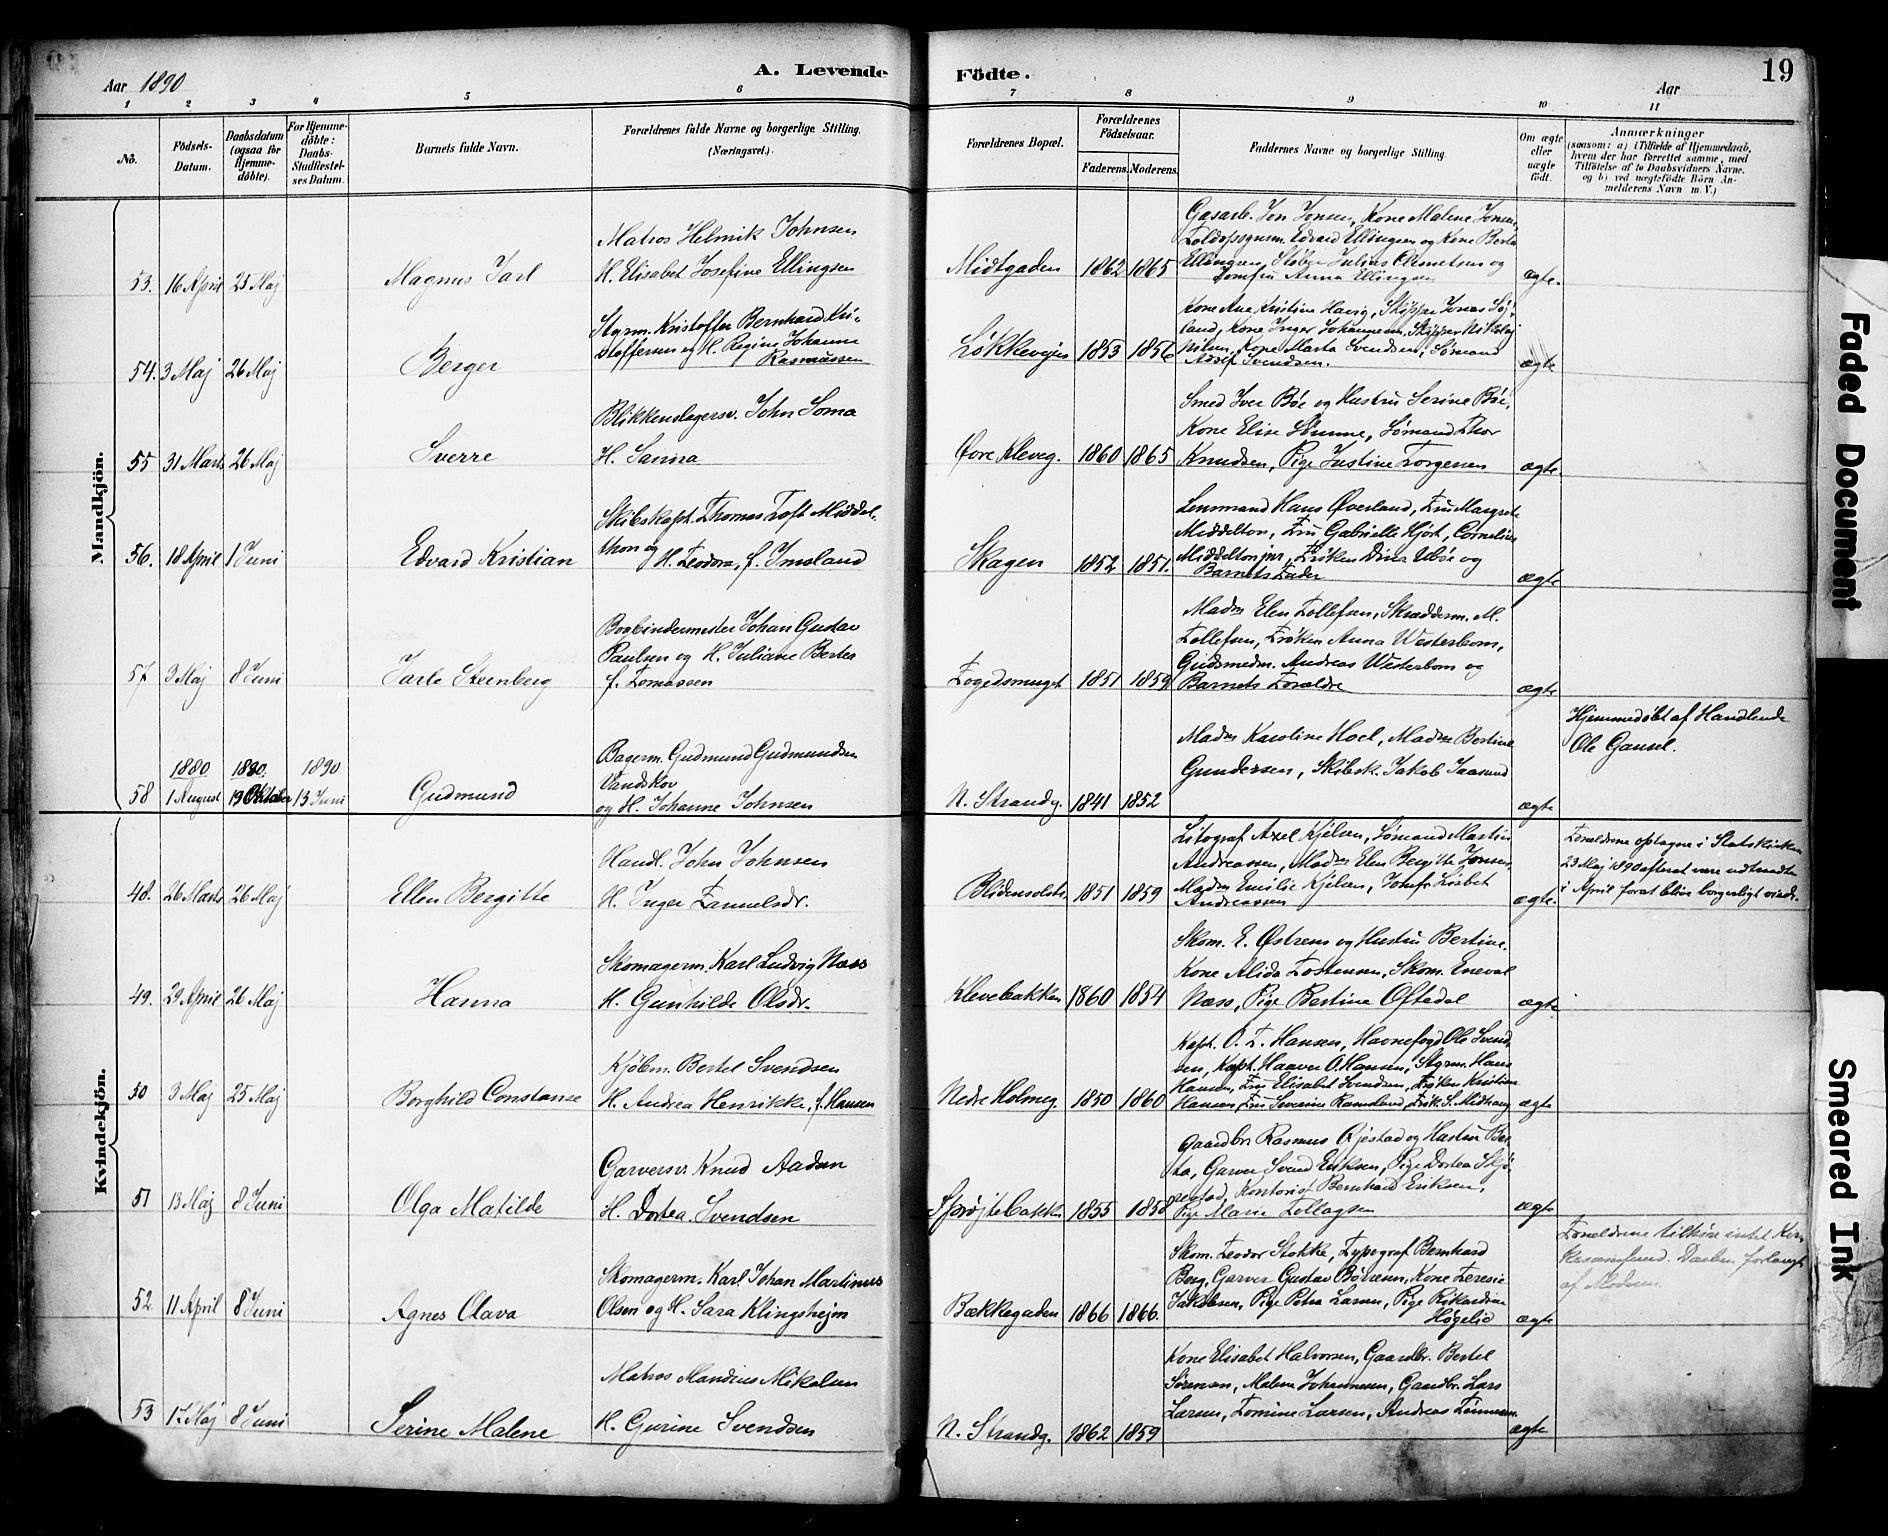 Aar 1890
A. Levende
Födte.
Aar
19
1 2 3 4 5 6 7 8 9 10 11
No.
Födsels-
Datum.
Daabsdatum
(ogsaa för
Hjemme-
döbte).
For Hjemme-
döbte:
Daabs-
Stadfæstel-
ses Datum.
Barnets fulde Navn.
Forældrenes fulde Navne og borgerlige Stilling.
(Næringsvei.)
Forældrenes Bopæl.
Forældrenes
Födselsaar.
Faderens. Moderens.
Faddernes Navne og borgerlige Stilling.
Om ægte
eller
uægte
födt.
Anmærkninger
(saasom: a) i Tilfælde af Hjemmedaab,
hvem der har forrettet samme, med
Tilföielse af to Daabsvidners Navne,
og b) ved uægtefödte Börn An-
melderens Navn m. V.)
Mandkjön.
53. 16 April 25 Maj
Magnus Jarl
Matros Helmik Johnsen
H. Elisabet Josefine Ellingsen
Midtgaden 1862 1865
Gasarb. Jon Jonsen, Kone Malene Jonsen,
Edvard Ellingsen og Kone Berta
Ellingsen, Støber Julius og
Jomfru Anna Ellingsen
ægte.
54. 3 Maj 26 Maj
Berger
Styrm. Kristoffer Bernhard Kri-
stoffersen og H. Regine Johanne
Rasmussen
Løkkevejen 1853 1856
Kone Ane Kristine Havig, Skipper Jonas Sø-
land, Kone Inger Johannesen, Skipper Nikolaj
Nilsen, Kone Marta Svendsen, Sømand
Adolf Svendsen.
ægte
55 31 Marts 26 Maj
Sverre
Blikkenslagersv. John Soma
H. Sanna
Øvre Kleveg. 1860 1865
Smed Iver Bøe og Hustru Serine Bøe,
Kone Elise Sømme, Sømand Thor
Knudsen, Pige Justine Torgersen
ægte.
56. 18 April 1 Juni
Edvard Kristian
Skibskapt. Thomas Toft Middel-
thon og
H. Teodora, f. Imsland
Skagen 1852 1851.
Lensmand Hans Øverland, Fru Margrete
Middelton, Fru Gabrielle Hjort, Cornelius
Middelton jnr, Frøken Dina Ubøe og
Barnets Fader
ægte
57 3 Maj 8 Juni
Jarle Steenberg
Bogbindermester Johan Gustav
Paulsen og H. Juliane Bertea
f. Tomassen
Fogedsmuget 1851 1859
Madm Elen Tollefsen, Skræderm. M.
Tollefsen, Frøken Anna Westerbom,
Guldsmedm. Andreas Westerbom og
Barnets Forældre
ægte
58
1880 1880. 1890
1 August 19 Oktober 13 Juni
Gudmund
Bagerm. Gudmund Gudmundsen
Vandskov
og H. Johanne Johnsen
N. Strandg. 1841 1852
Madm Karoline Hoel, Madm Bertine
Gundersen, Skibsk. Jakob Jaasund
ægte
Hjemmedøbt af Handlende
Ole Gausel.
Kvindekjön.
48. 26 Marts 26 Maj
Ellen Bergitte
Handl. John Johnsen
H. Inger Samuelsdr.
Blidensolstr. 1851 1859
Litograf Axel Kjelsen, Sømand Martin
Andreassen, Madm Elen Bergitte Jonsen,
Madm Emilie Kjelsen, Jomfr Lisbet
Andreassen
ægte.
Forældrene optagne i Statskirken
23 Maj 1890 efterat være udtraadte
i April forat blive borgerligt viede.
49. 29 April 26 Maj
Hanna
Skomagerm. Karl Ludvig Næss
H. Gunhilde Olsdr.
Klevebakken 1860 1854
Skom. E. Østrem og Hustru Bertine.
Kone Alida Tostensen, Skom. Eneval
Næss, Pige Bertine Oftedal
ægte
50 3 Maj 25 Maj
Borghild Constanse
Kjøbm. Bertel Svendsen
H. Andrea Henrikke, f. Hansen
Nedre Holmeg. 1850 1860
Kapt. O. T. Hansen, Havnefoged Ole Svend-
sen, Kapt. Haaver O. Hansen, Styrm. Hans
Hansen, Fru Elisabet Svendsen, Frøken Kristine
Hansen, Fru Severine Ramsland, Frøk. S. Midhaug
ægte
51 13 Maj 8 Juni
Olga Matilde
Garversv. Knud Aadsen
H. Dortea Svendsen
Sprøjtebakken 1855 1858
Gaardbr Rasmus Gjestad og Hustru Ber-
ta, Garver Svend Eriksen, Pige Dortea Skjø-
restad, Kontorist Bernhard Eriksen,
Pige Marie Tollagsen
ægte
52 11 April 8 Juni
Agnes Olava
Skomagerm. Karl Johan Martinus
Olsen og H. Sara Klingshejm
Bækkegaden 1866 1866.
Skom. Teodor Stokke, Typograf Bernhard
Berg, Garver Gustav Børresen, Kone Teresie
Jakobsen, Pige Petra Larsen, Pige Rikardine
Høgelid
ægte
Forældrene tilhøre intet Kir-
kesamfund. Daaben forlangt
af Moderen.
53 17 Maj 8 Juni
Serine Malene
Matros Mandius Mikalsen
H. Gurine Svendsen
N. Strandg. 1862 1859
Kone Elisabet Halvorsen, Gaardbr. Bertel
Sørensen, Malene Johannesen, Gaardbr. Lars
Larsen, Tomine Larsen, Andreas Tønnesen.
ægte
Faded Document
Smeared Ink